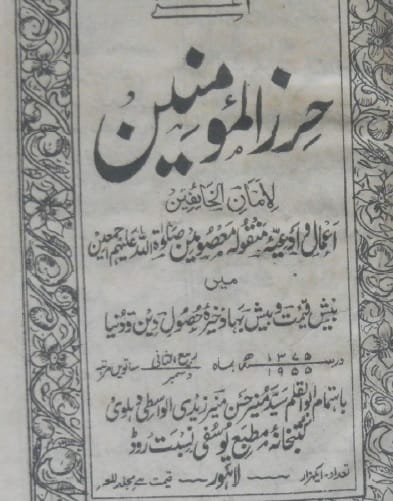 اعنے
حرز المؤمنین
لامان الخائفین
اعمال و ادعیۂ منقولہ معصومین صلوٰۃ اللہ علیہم اجمعین
میں
بیش قیمت و بیش بہا ذخیرۂ حصول دین و دنیا
در ۱۳۷۵ ۱۹۵۵ بماہ ربیع الثانی دسمبر ساتویں مرتبہ
باہتمام ابوالقلم سید منیر حسن منیر زیدی الواسطی دہلوی
کتبخانہ مطبع یوسفی نسبت روڈ
تعداد۔ ایکہزار لاہور قیمت